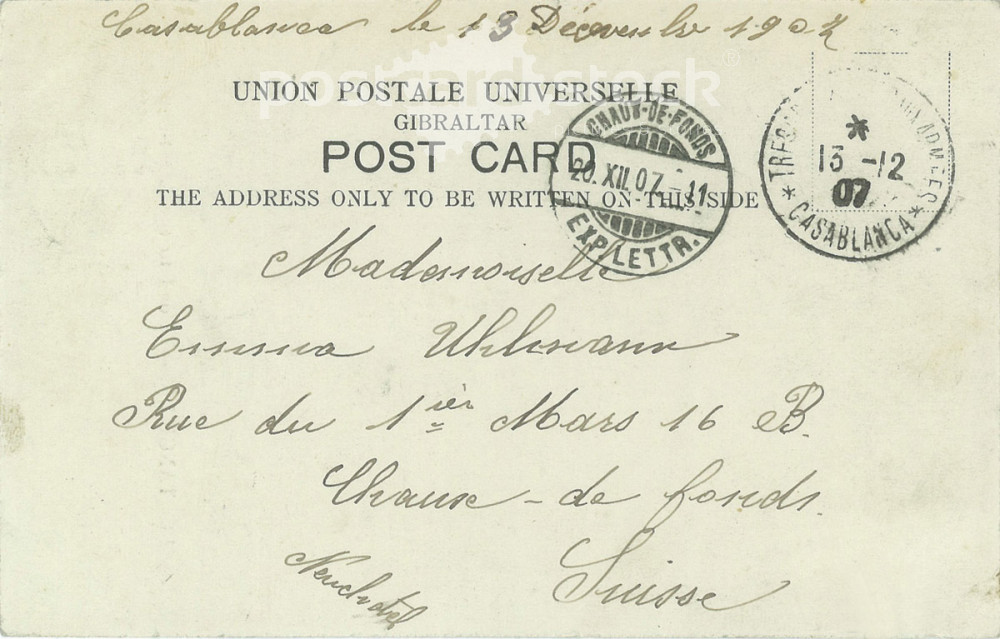 Casablanca le 13 Décembre 1907
postcard stock
UNION POSTALE UNIVERSELLE
GIBRALTAR
POST CARD
THE ADDRESS ONLY TO BE WRITTEN ON THIS SIDE
CHAUX-DE-FONDS
20.XII.07.-11
EXP. LETTR.
* CASABLANCA *
13 -12
07
Mademoiselle
Emma Uhlmann
Rue du 1ier Mars 16 B.
Chaux-de fonds.
Suisse
Neuchatel